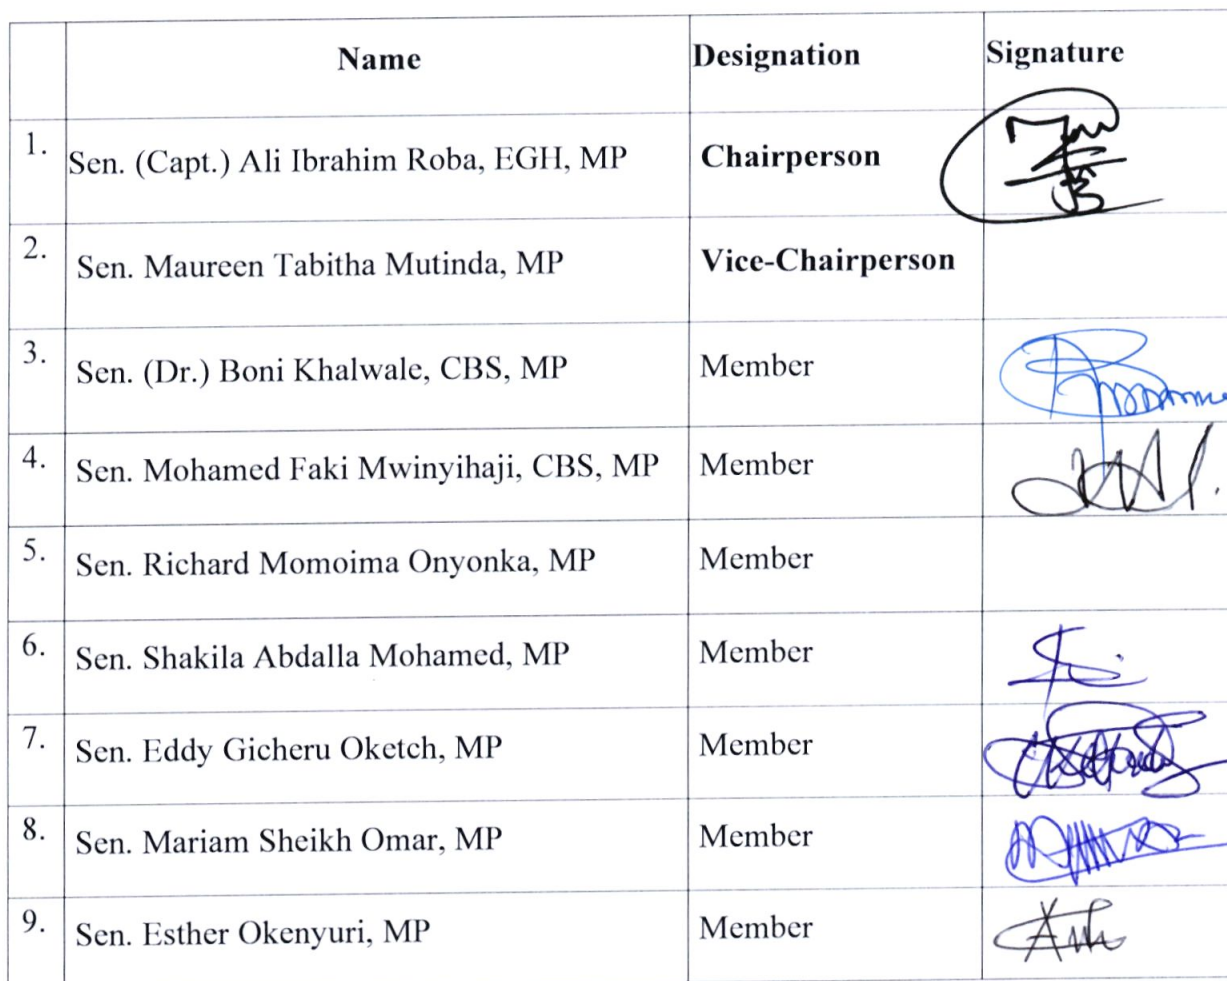 Name Designation Signature
1. Sen. (Capt.) Ali Ibrahim Roba, EGH, MP Chairperson
2. Sen. Maureen Tabitha Mutinda, MP Vice-Chairperson
3. Sen. (Dr.) Boni Khalwale, CBS, MP Member
4. Sen. Mohamed Faki Mwinyihaji, CBS, MP Member
5. Sen. Richard Momoima Onyonka, MP Member
6. Sen. Shakila Abdalla Mohamed, MP Member
7. Sen. Eddy Gicheru Oketch, MP Member
8. Sen. Mariam Sheikh Omar, MP Member
9. Sen. Esther Okenyuri, MP Member